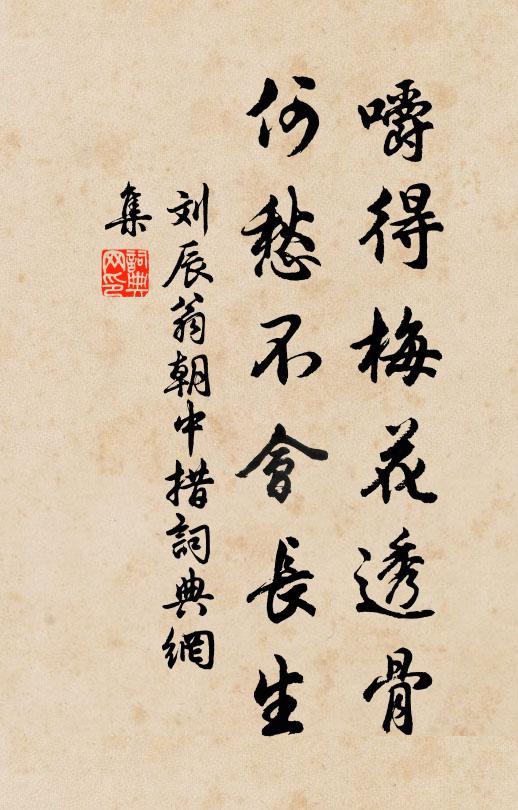 嚼得梅花透骨
何愁不會長生
刘辰翁朝中措詞典網
集
詞典
网印